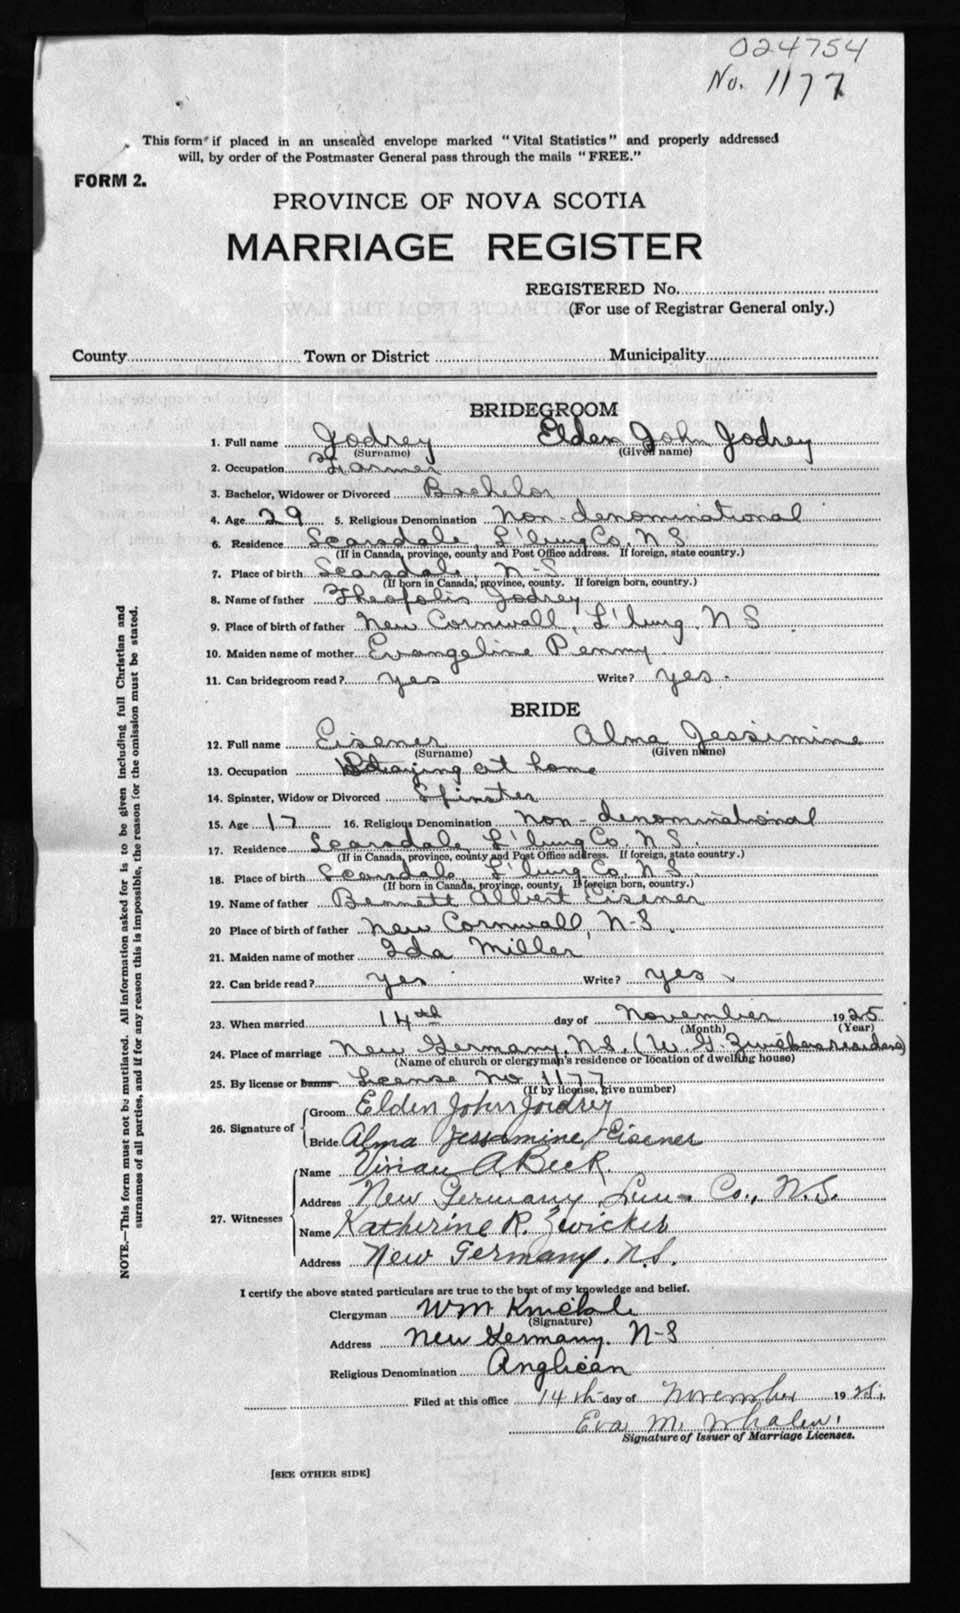 024754
No. 1177
This form if placed in an unsealed envelope marked "Vital Statistics" and properly addressed
will, by order of the Postmaster General pass through the mails "FREE."
FORM 2.
PROVINCE OF NOVA SCOTIA
MARRIAGE REGISTER
REGISTERED No.
(For use of Registrar General only.)
County Town or District Municipality
BRIDEGROOM
1. Full name Jodrey Elden John Jodrey
(Surname) (Given name)
2. Occupation Farmer
3. Bachelor, Widower or Divorced Bachelor
4. Age 29 5. Religious Denomination Non-denominational
6. Residence Scarsdale, L'burg Co. N.S.
(If in Canada, province, county and Post Office address. If foreign, state country.)
7. Place of birth Scarsdale, N-S
(If born in Canada, province, county. If foreign born, country.)
8. Name of father Theofolis Jodrey
9. Place of birth of father New Cornwall, L'burg. N S
10. Maiden name of mother Evangeline Penny
11. Can bridegroom read? yes Write? yes.
BRIDE
12. Full name Eisener Alma Jessimine
(Surname) (Given name)
13. Occupation Staying at home
14. Spinster, Widow or Divorced Spinster
15. Age 17 16. Religious Denomination Non-denominational
17. Residence Scarsdale, L'burg Co. N.S.
(If in Canada, province, county and Post Office address. If foreign, state country.)
18. Place of birth Scarsdale, L'burg Co. N.S.
(If born in Canada, province, county. If foreign born, country.)
19. Name of father Bennett Albert Eisener
20 Place of birth of father New Cornwall, N-S.
21. Maiden name of mother Ida Miller
22. Can bride read? yes Write? yes
23. When married 14th day of November 1925
(Month) (Year)
24. Place of marriage New Germany, N.S. (W. G. residence)
(Name of church or clergyman's residence or location of dwelling house)
25. By license or banns License No 1177
(If by license, give number)
26. Signature of Groom Elden John Jodrey
Bride Alma Jessamine Eisener
27. Witnesses Name Vivian A. Beck
Address New Germany Lun-Co., N.S.
Name Katherine R. Zwicker
Address New Germany. N.S.
I certify the above stated particulars are true to the best of my knowledge and belief.
Clergyman Wm
(Signature)
Address New Germany. N-S
Religious Denomination Anglican
Filed at this office 14th day of November 1925.
Eva M. Whalen.
Signature of Issuer of Marriage Licenses.
[SEE OTHER SIDE]
NOTE.—This form must not be mutilated. All information asked for is to be given including full Christian and
surnames of all parties, and if for any reason this is impossible, the reason for the omission must be stated.